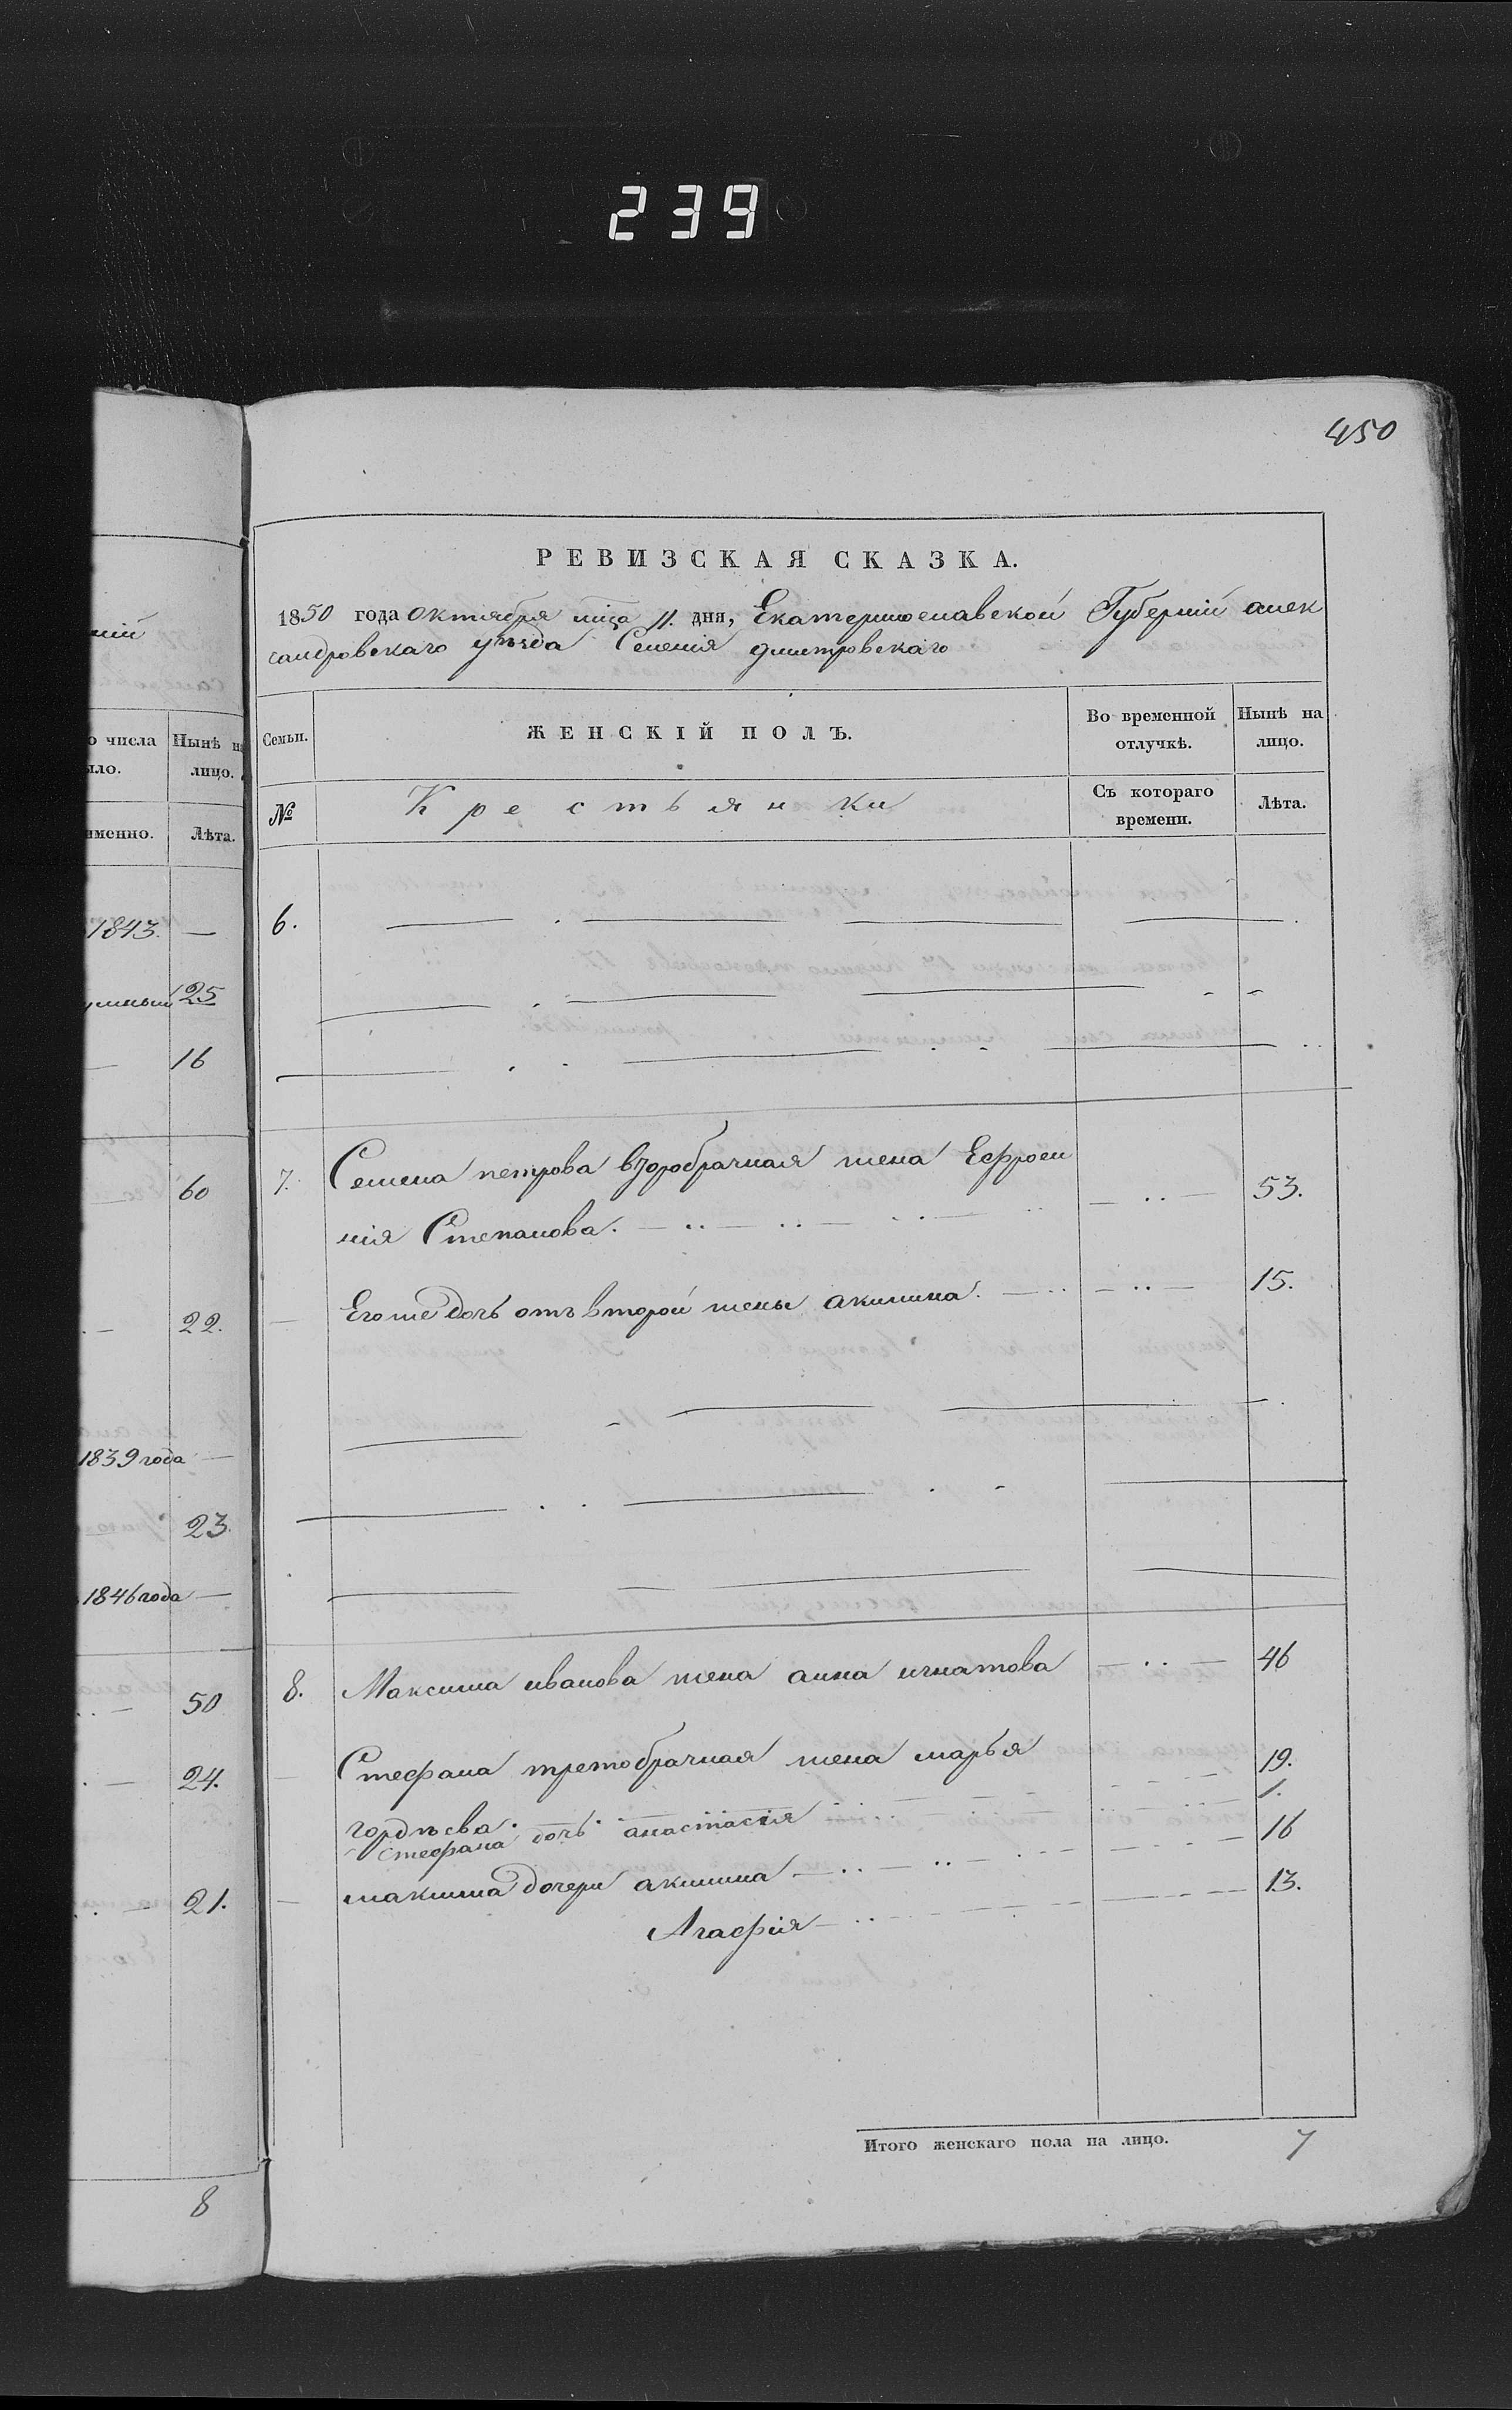 239
450
РЕВИЗСКАЯ СКАЗКА.
1850 года октября мца 11. дня, Екатеринославской Губерніи алек
сандровскаго уѣзда Селенія дмитровскаго
Семьи.
ЖЕНСКІЙ ПОЛЪ.
Во временной отлучкѣ.
Нынѣ на лицо.
№
Крестьянки
Съ котораго времени.
Лѣта.
6.
7. Семена петрова второбрачная жена Ефроси
нія Степанова. 53.
Егоже дочь отъ второй жены акилина. 15.
8. Максима иванова жена анна игнатова 46
Стефана третобрачная жена марья 19.
гордѣева.
Стефана дочь анастасія 1.
максима дочери акилина 16
Агафія 13.
Итого женскаго пола на лицо. 7
ніи
о числа
ыло.
Нынѣ на
лицо.
именно.
Лѣта.
1843. —
25
16
60
22.
1839 года —
23.
1846 года —
50
24.
21.
8